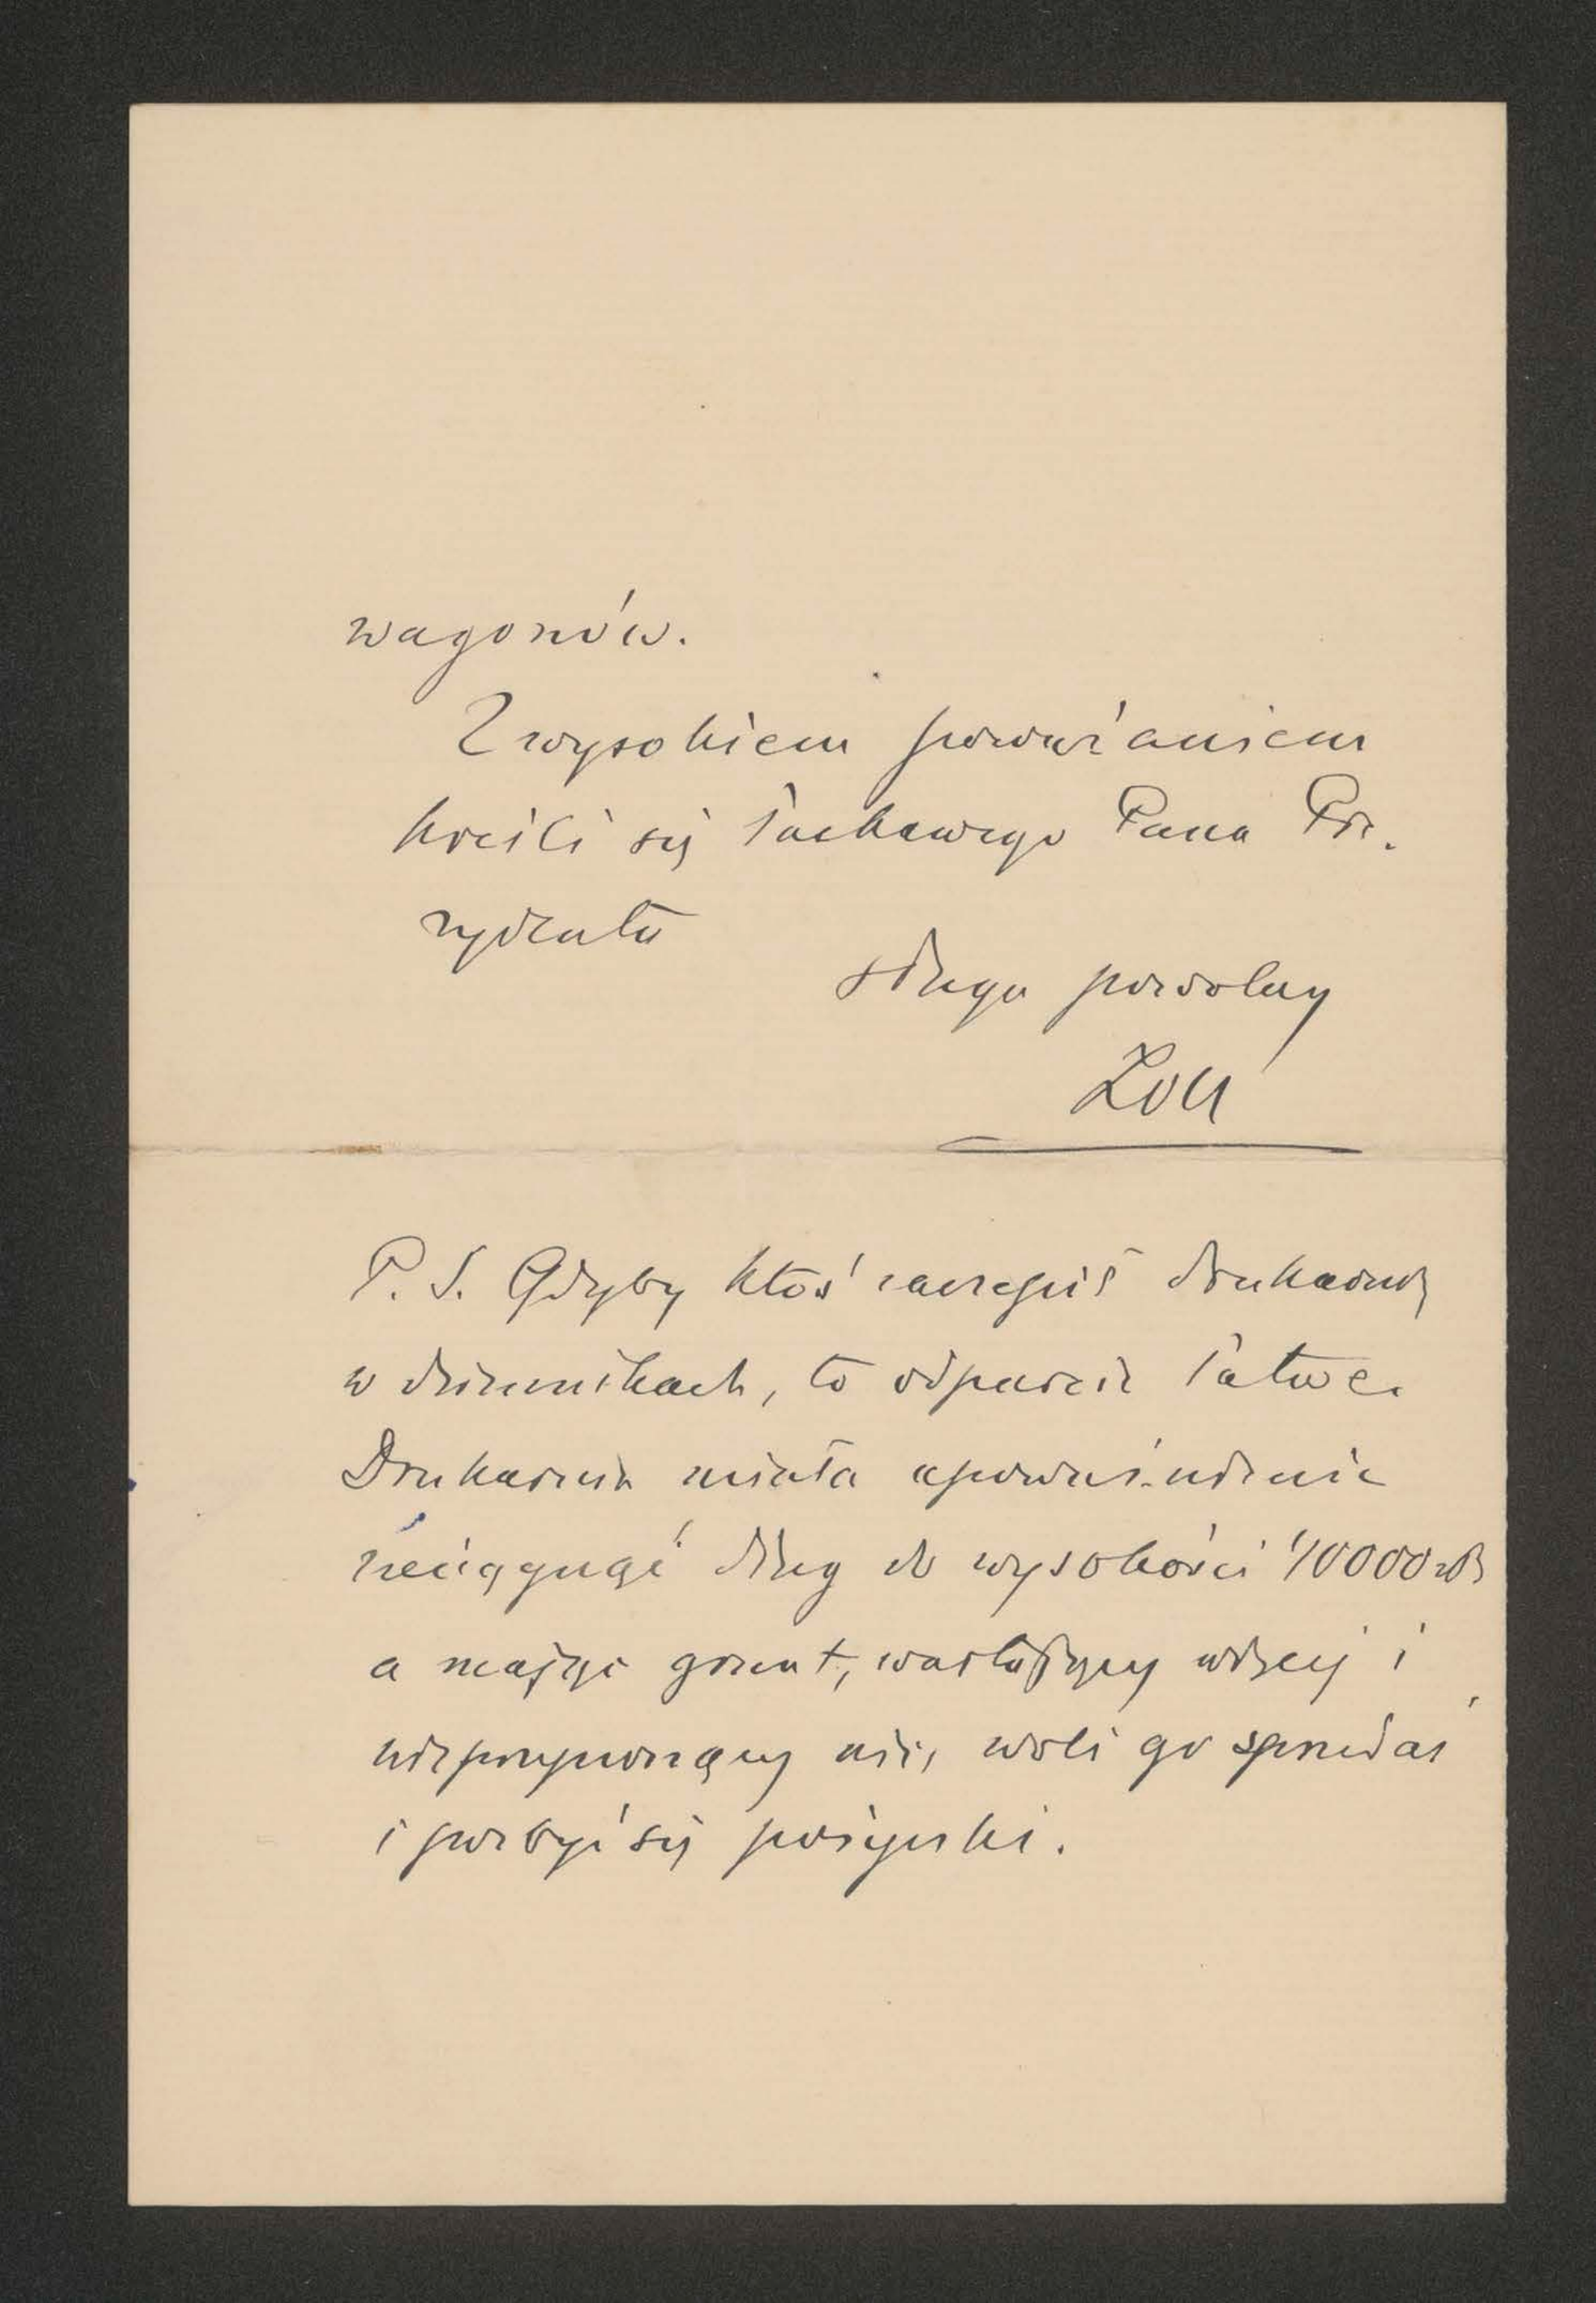 wagonów.
Z wysokiem poważaniem
kreśli się łaskawego Pana Pre-
zydenta
sługa powolny
Zoll
P. S. Gdyby ktoś zaczepił drukarnię
w dziennikach, to odparcie łatwe.
Drukarnia miała upoważnienie
zaciągnąć dług do wysokości 40000 złr
a mając grunt, wartujący więcej i
nieprzynoszący nic, woli go sprzedać
i pozbyć się pożyczki.